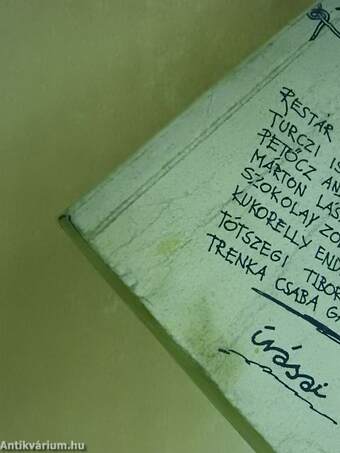 RESTÁR
TURCZI IS
PETŐCZ AN
MÁRTON LÁS
SZOKOLAY ZO
KUKORELLY END
TÓTSZEGI TIBOR
TRENKA CSABA GÁ
írásai
Antikvárium.hu